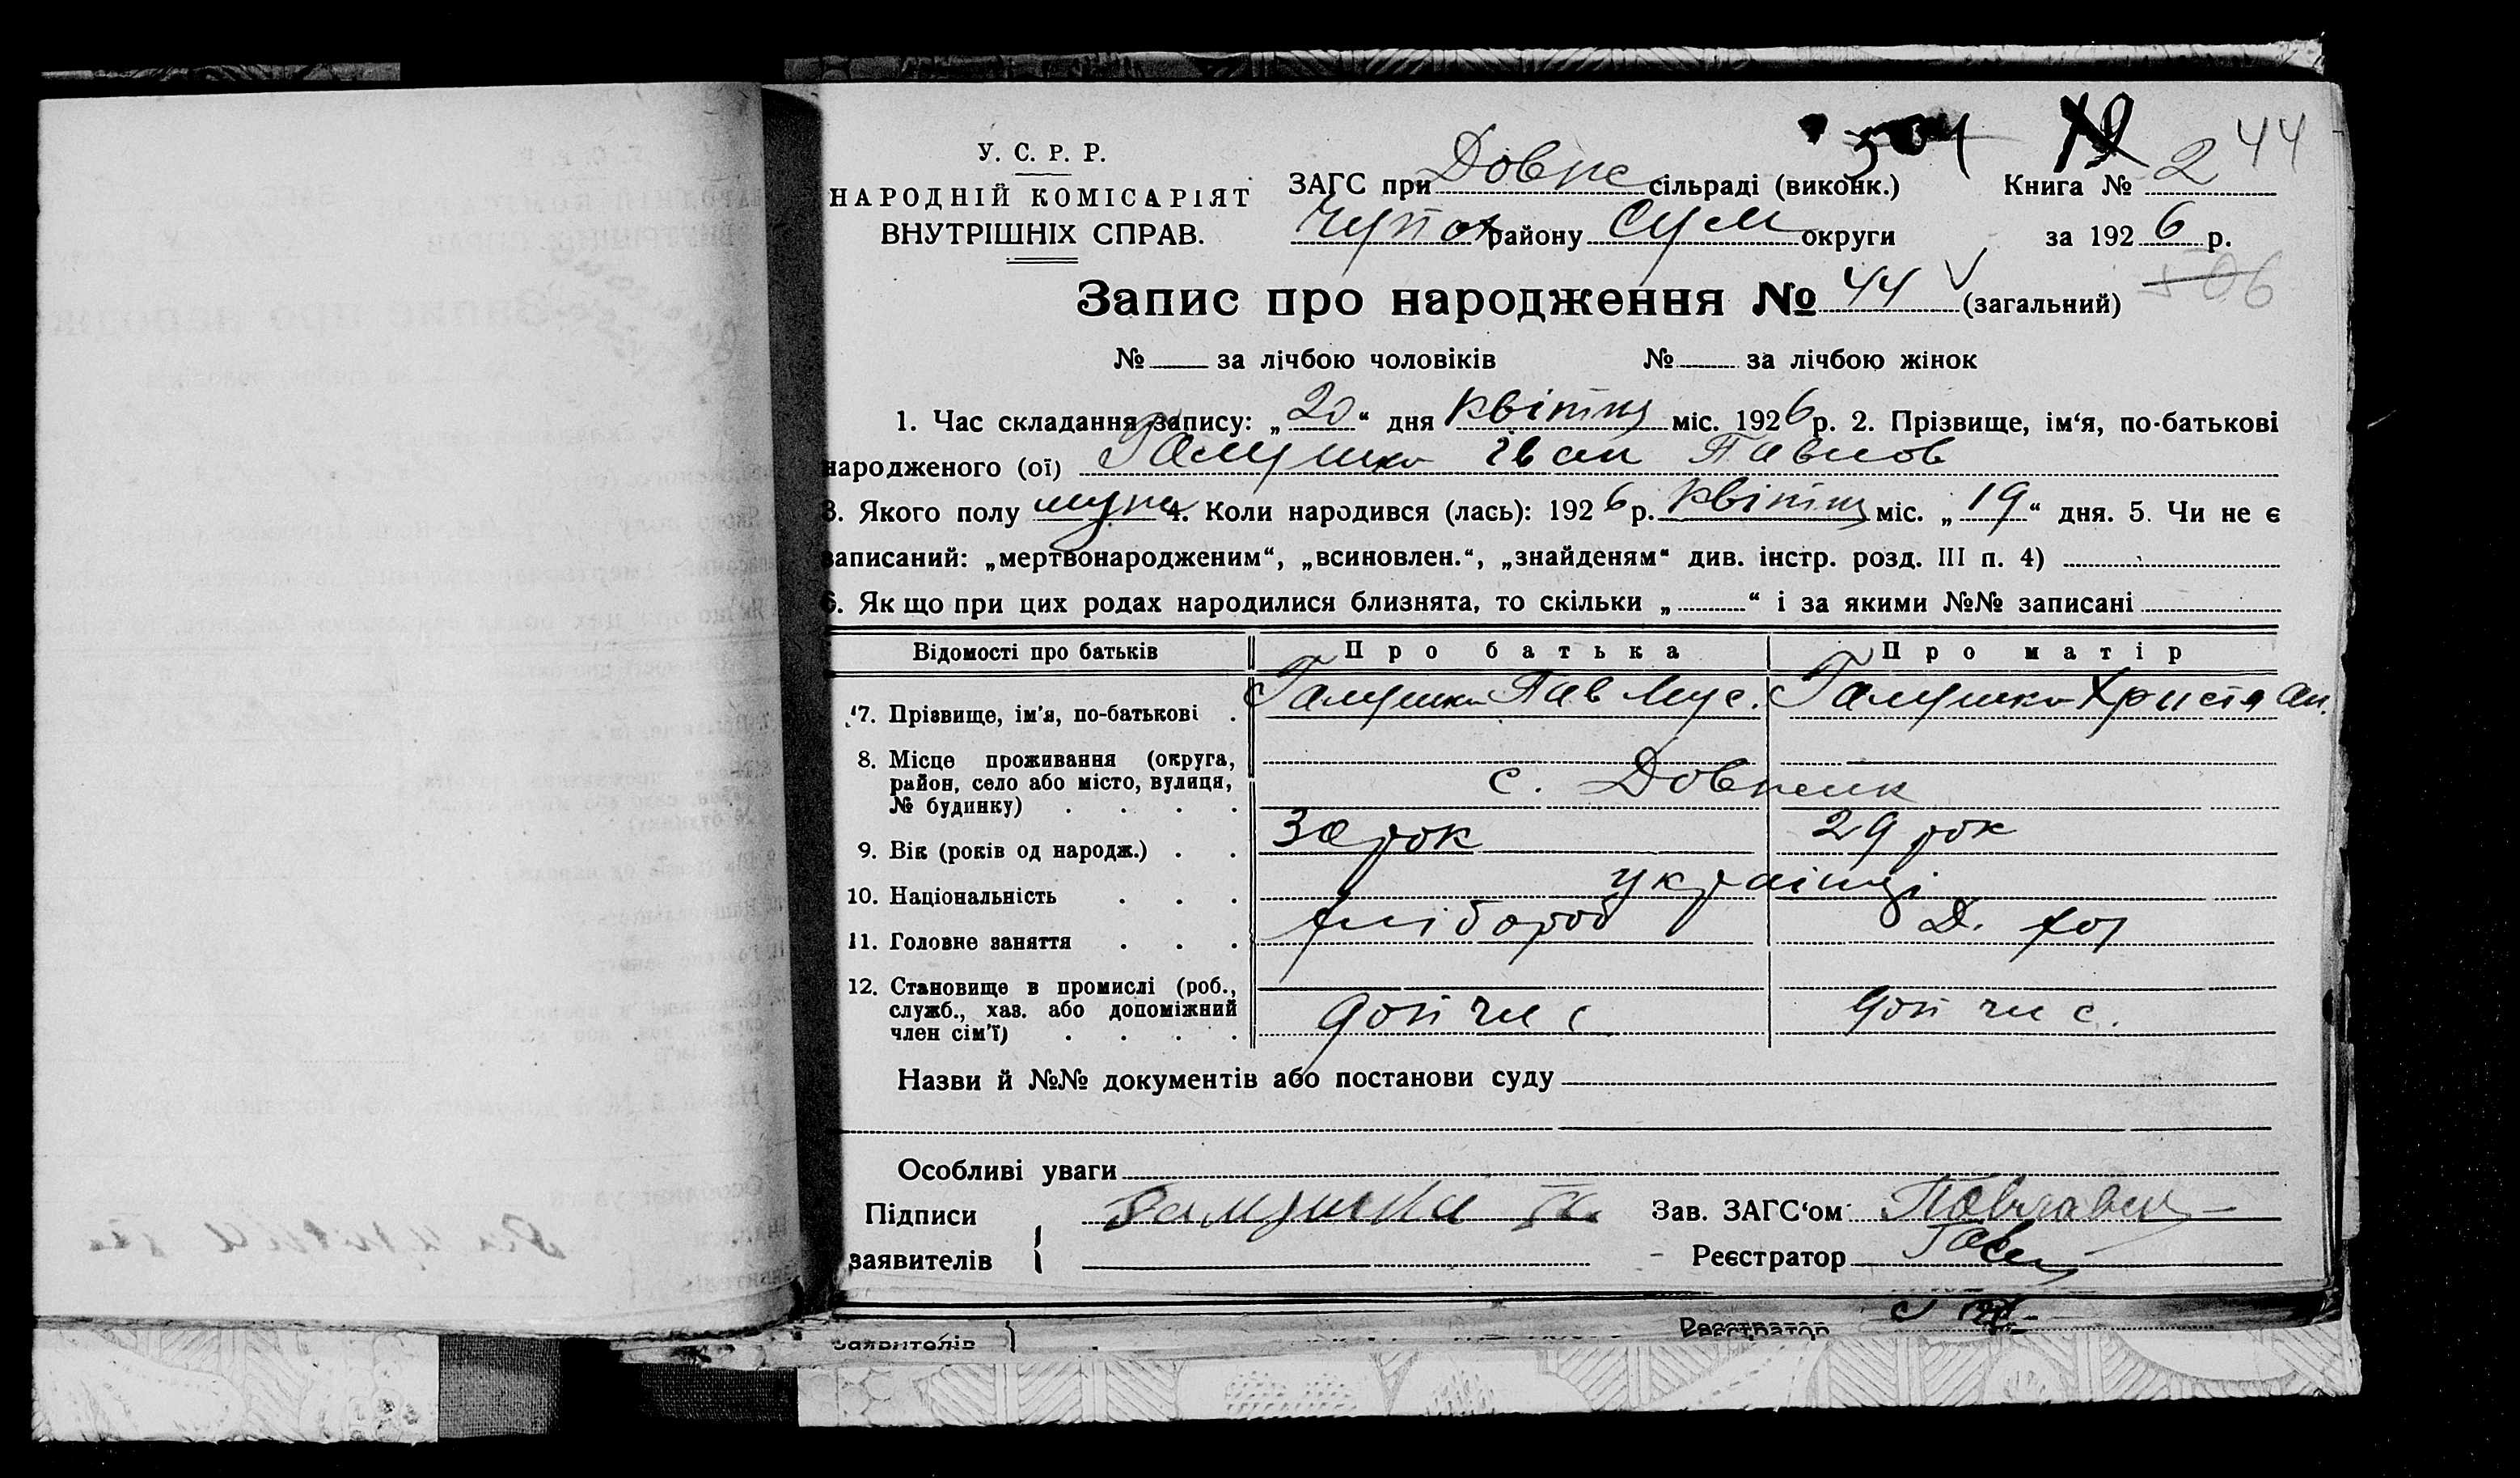 504 10 44
У. С. Р. Р.
НАРОДНІЙ КОМІСАРІЯТ
ВНУТРІШНІХ СПРАВ.
ЗАГС при Довпс сільраді (виконк.) Книга № 2
району Сум округи за 1926 р.
Запис про народження № 44 (загальний) 506
№ за лічбою чоловіків № за лічбою жінок
1. Час складання запису: „20“ дня квітня міс. 1926 р. 2. Прізвище, ім‘я, по-батькові
народженого (ої) Галушка Іван Павлов
3. Якого полу 4. Коли народився (лась): 1926 р. квітня міс. „19“ дня. 5. Чи не є
записаний: „мертвонародженим“, „всиновлен.“, „знайденям“ див. інстр. розд. III п. 4)
6. Як що при цих родах народилися близнята, то скільки „ “ і за якими №№ записані
Відомості про батьків Про батька Про матір
7. Прізвище, ім'я, по-батькові Галушка Пав Мус. Галушка Христя Ан.
8. Місце проживання (округа,
район, село або місто, вулиця,
№ будинку) с. Довпенк
9. Вік (років од народж.) 30 рок 29 рок
10. Національність українці
11. Головне заняття хлібороб Д. хоз
12. Становище в промислі (роб.,
служб., хаз. або допоміжний
член сім'ї) доп чл с доп чл с.
Назви й №№ документів або постанови суду
Особливі уваги
Підписи Галушка Зав. ЗАГС‘ом
заявителів Реєстратор
заявителів Реєстратор